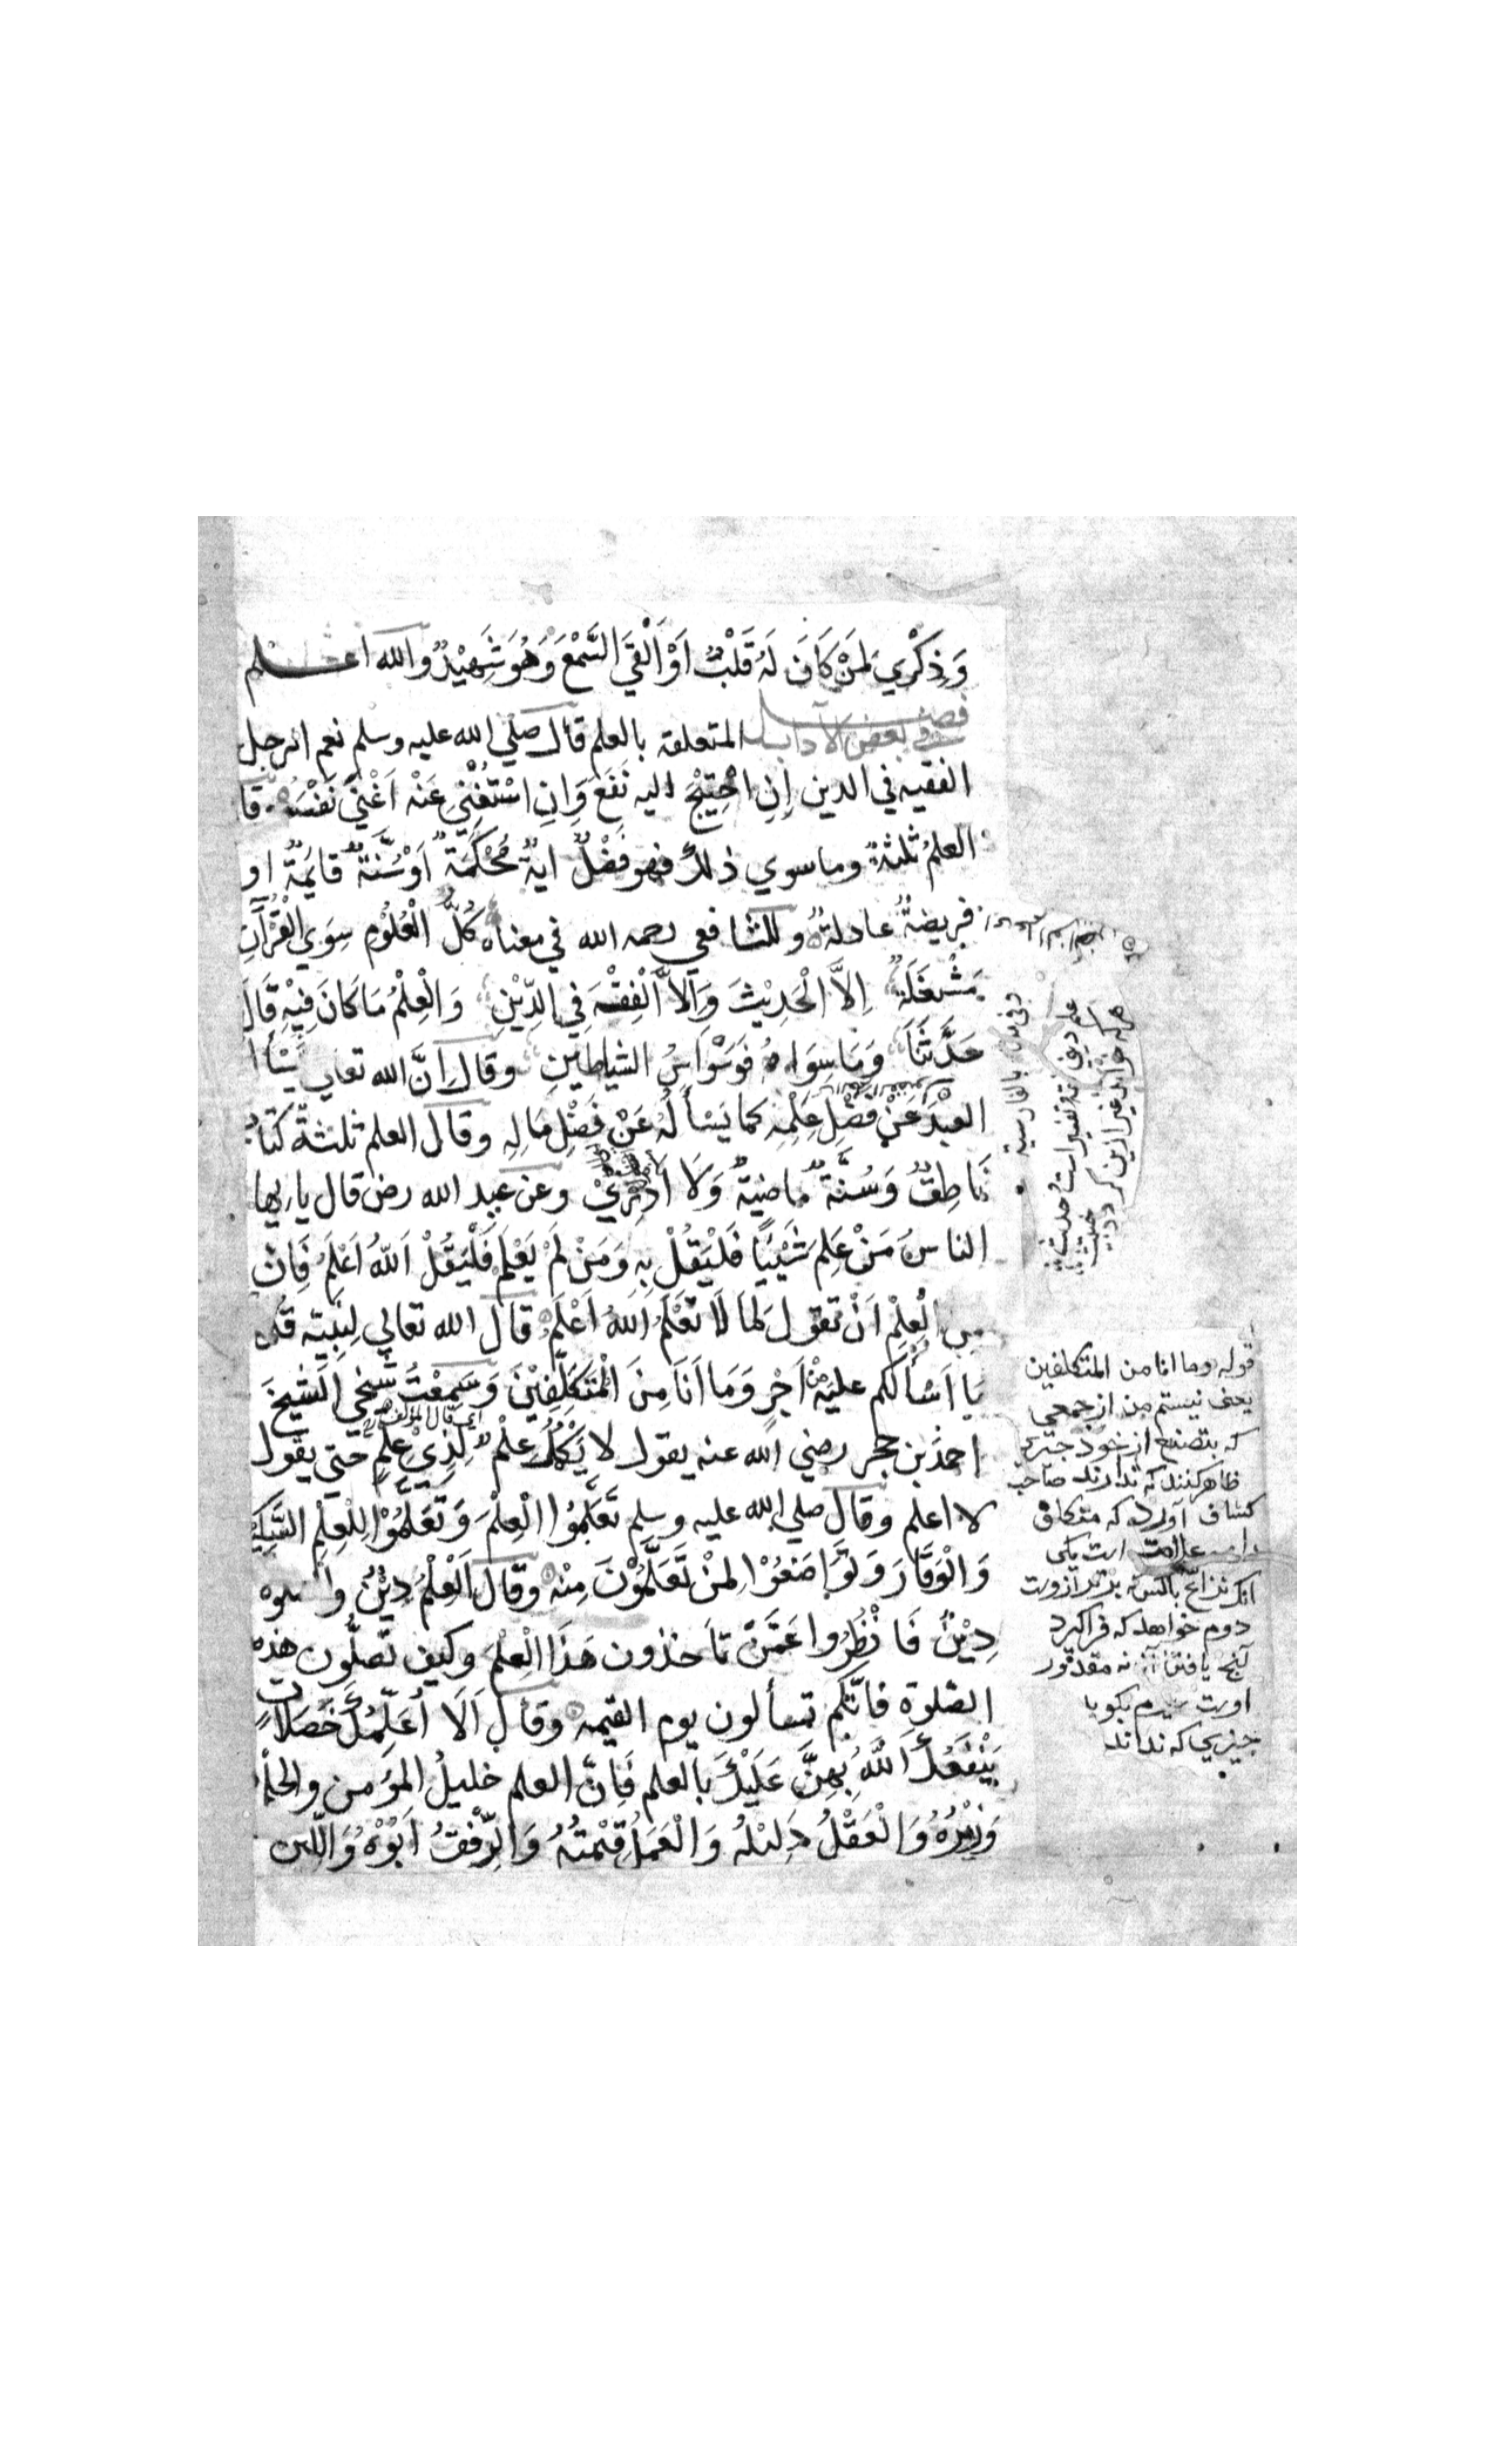 وَذِكْرِي لِمَنْ كَانَ لَهُ قَلْبٌ اَوْ اَلْقَي السَّمْعَ وَهُوَ شَهِيْدٌ والله اعلم
فصل في بعض الآداب المتعلقة بالعلم قال صلي الله عليه وسلم نعم الرجل
الفقيه في الدين اِنِ احْتِيْجَ اليه نَفَعَ وَاِنِ اسْتُغْنِيَ عَنْه اَغْنَي نَفْسَه قا
العلمُ ثلثةٌ وما سوي ذلك فهو فَضْلٌ ايةٌ مُحْكَمَةٌ اَوْ سُنَّةٌ قَايِمَةٌ او
فريضةٌ عادلةٌ وللشافعي رحمه الله في معناه كُلُّ الْعُلُوْمِ سِوَي الْقُرْآنِ
مَشْغَلَةٌ اِلاَّ الْحَدِيْثَ وَاِلاَّ الْفِقْهَ فِي الدِّيْنِ وَالْعِلْمُ مَا كَانَ فِيْهِ قَالَ
حَدَّثَنَا وَمَا سِوَاهُ فَوَسْوَاسُ الشياطينِ وقال اِنَّ الله تعالي يَسْأَلُ
العبدَ عَنْ فَضْلِ عِلْمِهِ كما يَسْأَلُهُ عَنْ فَضْلِ مَالِهِ وقال العلم ثلثةٌ كتابٌ
نَاطِقٌ وَسُنَّةٌ ماضيةٌ وَلَا اَدْرِيْ وعن عبد الله رض قال يا ايها
الناسُ مَنْ عَلِمَ شَيْئًا فَلْيَقُلْ بِهِ وَمَنْ لَمْ يَعْلَمْ فَلْيَقُلْ اَللهُ اَعْلَمُ فَاِنَّ
من الْعِلْمِ اَنْ تقولَ لِمَا لَا تَعْلَمُ اَللهُ اَعْلَمُ قال الله تعالي لِنَبِيِّه قُل
مَا اَسْألكم عليهِ مِنْ اَجْرٍ وَمَا اَنَا مِنَ الْمُتَكَلِّفِيْنَ وَسَمِعْتُ شيخي الشيخَ
احمدَ بن حجر رضي الله عنه يقول لا يَكْمُلُ عِلْمٌ لِذِيْ عِلْمٍ حَتّي يقول
لا اعلم وقال صلي الله عليه وسلم تَعَلَّمُوْا الْعِلْمَ وَتَعَلَّمُوْا لِلْعِلْمِ السَّكِيْنَةَ
وَالْوَقَارَ وَتَوَاضَعُوْا لِمَنْ تَعَلَّمُوْنَ مِنْهُ وقال اَلْعِلْمُ دِيْنٌ والصلوة
دِيْنٌ فَانْظُرُوا عَمَّنْ تأخذون هَذَا الْعِلْمَ وكيف تُصَلُّون هذه
الصّلوة فَاِنَّكُمْ تُسألون يوم القيمه وقال اَلَا اُعَلِّمُكَ خَصَلَاتٍ
يَنْفَعُكَ اَللهُ بِهِنَّ عَلَيْكَ بالعلم فَاِنَّ العلم خليلُ المؤمن والحلمُ
وَزِيْرُهُ وَالْعَقْلُ دَلِيْلُهُ وَالْعَمَلُ قَيِّمَتُهُ وَالرِّفْقُ اَبُوْهُ وَاللّين
اي قال المؤلف
علم دين فقه تفسير است و حديث
هركه خواند غير ازين كردد خبيث
قوله وما انا من المتكلفين
يعني نيستم من از جمعي
كه بتصنع از خود چيزي
ظاهر كنند كه ندارند صاحب
كشاف آورده كه متكلف
را سه علامت است يكي
آنكه نزاع باكسي برتر ازوست
دوم خواهد كه فراكيرد
آنچه يافتن آن نه مقدور
اوست سيوم بكويد
چيزي كه نداند